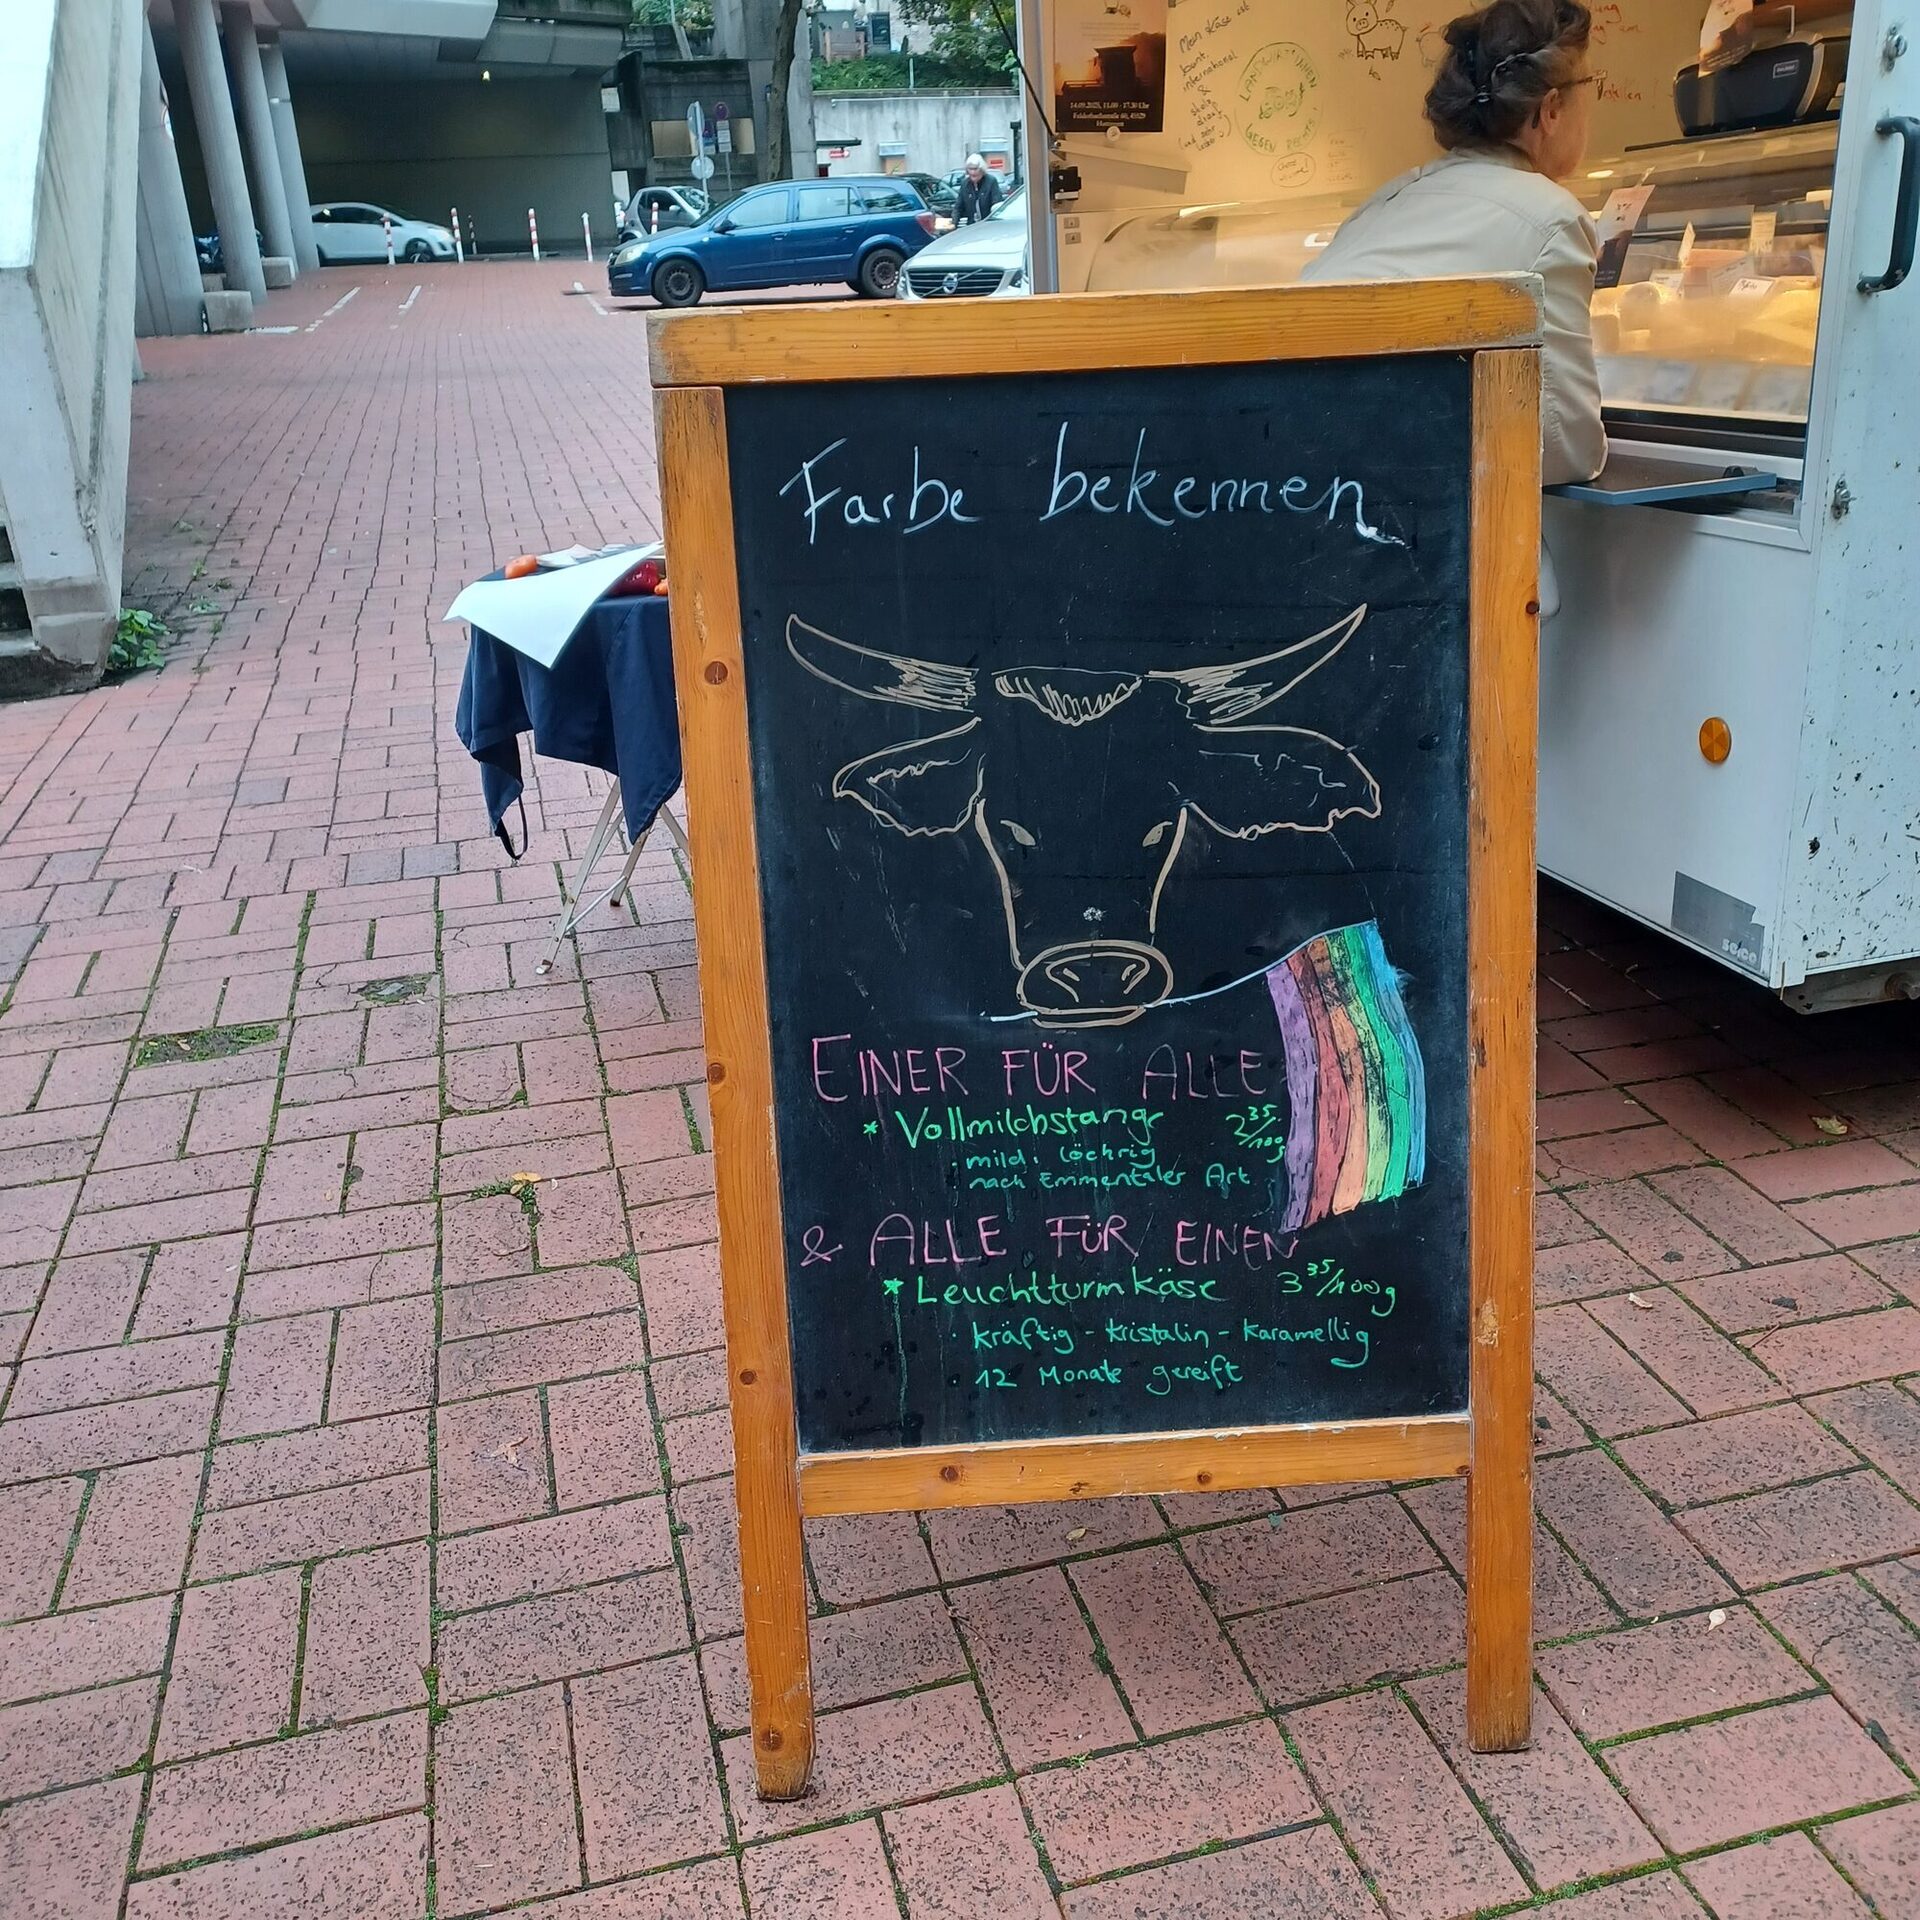 Mein Käse ist
bunt,
international
&
LANDWIRT*INNEN
GEGEN RECHTS!
14.09.2025, 11.00 - 17.30 Uhr
Hattingen
Farbe bekennen
EINER FÜR ALLE
* Vollmilchstange 2 35/100g
· mild · löchrig
nach Emmentaler Art
& ALLE FÜR EINEN
* Leuchtturmkäse 3 35/100g
· kräftig - kristalin - karamellig
· 12 Monate gereift